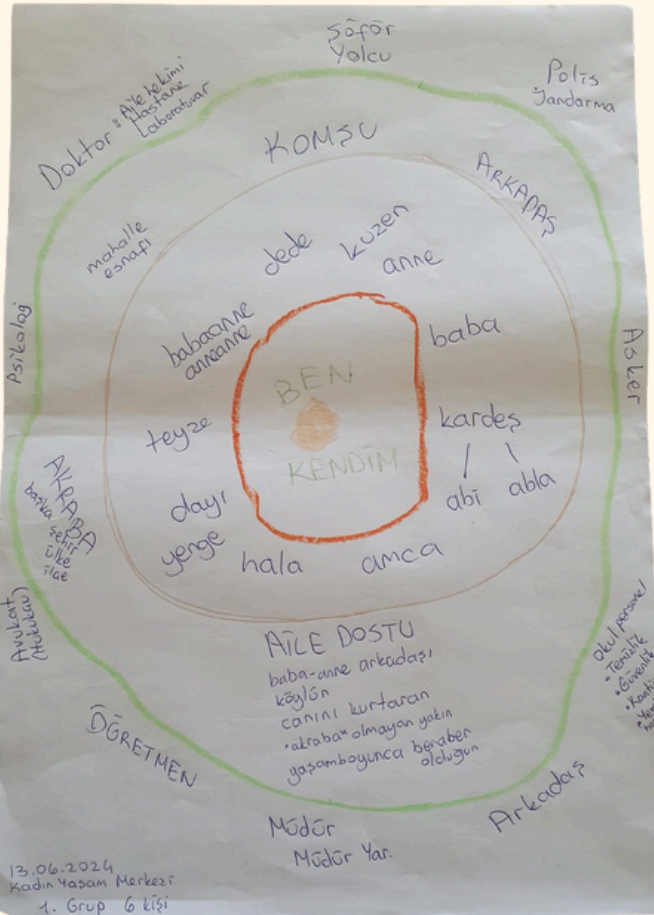 Şöför
Yolcu
Polis
Jandarma
Doktor : Aile hekimi
Hastane
Laboratuvar
KOMŞU
ARKADAŞ
mahalle
esnafı
dede
kuzen
anne
babaanne
anneanne
baba
Psikoloğ
Asker
BEN
KENDİM
teyze
kardeş
abi
abla
dayı
yenge
hala
amca
AKRABA
başka
şehir
ülke
ilçe
Avukat
(Hukukav)
AİLE DOSTU
baba-anne arkadaşı
köylün
canını kurtaran
"akraba" olmayan yakın
yaşamboyunca beraber
olduğun
Okul personel
• Temizlik
• Güvenlik
ÖĞRETMEN
Arkadaş
Müdür
Müdür Yar.
13.06.2024
Kadın Yaşam Merkezi
1. Grup 6 kişi